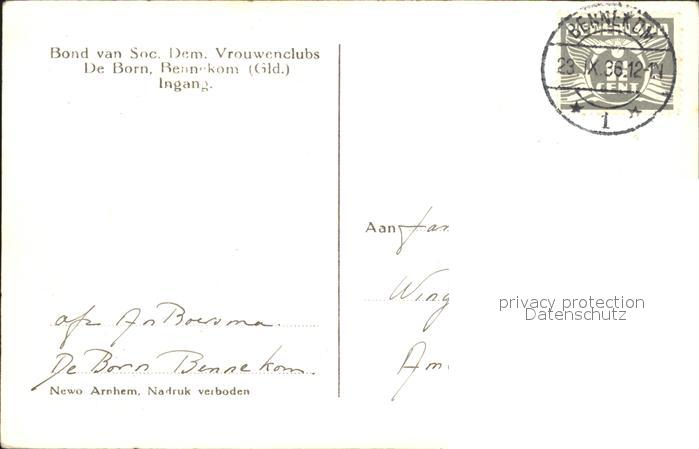 Bond van Soc. Dem. Vrouwenclubs
De Born, Bennekom (Gld.)
Ingang.
BENNEKOM
23.IX.36.12-1N
1
CENT
Aan Fam
Wing
Am
privacy protection
Datenschutz
afz An Boersma
De Born Bennekom.
Newo Arnhem, Nadruk verboden